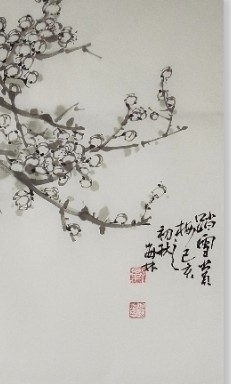 踏雪赏
梅己亥
初秋
海林